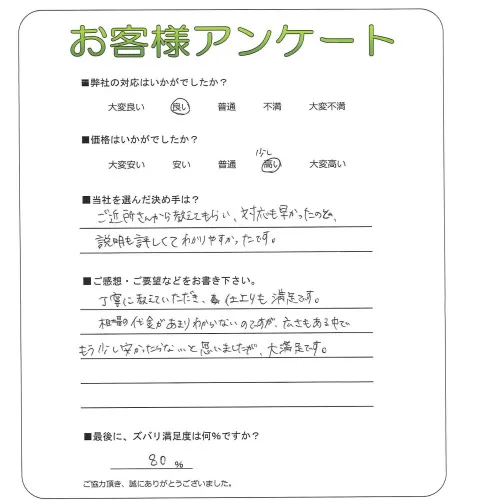 お客様アンケート
■弊社の対応はいかがでしたか？
大変良い 良い 普通 不満 大変不満
■価格はいかがでしたか？
少し
大変安い 安い 普通 高い 大変高い
■当社を選んだ決め手は？
ご近所さんから教えてもらい、対応も早かったのと、
説明も詳しくてわかりやすかったです。
■ご感想・ご要望などをお書き下さい。
丁寧に教えていただき、仕上りも満足です。
相場の代金があまりわからないのですが、広さもある中で
もう少し安かったらないと思いましたが、大満足です。
■最後に、ズバリ満足度は何％ですか？
80 %
ご協力頂き、誠にありがとうございました。